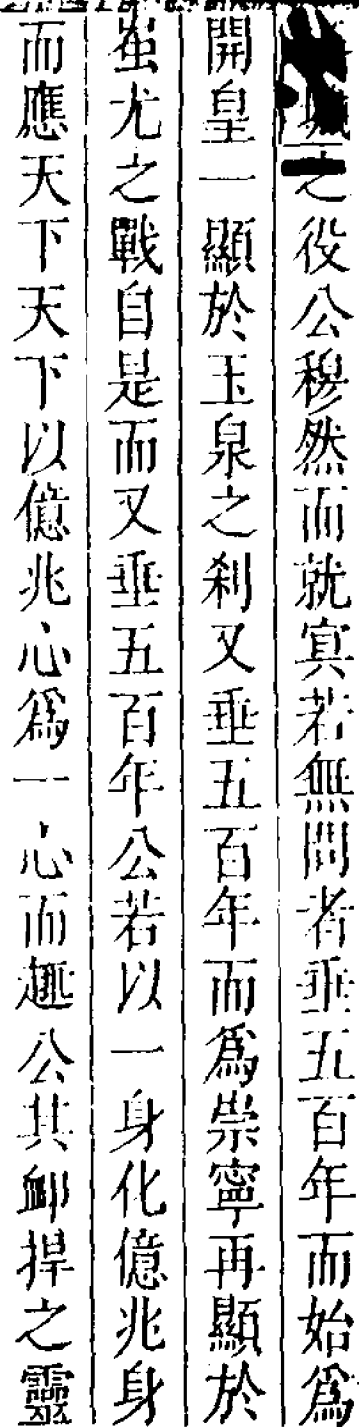 城之役公穆然而就㝠若無聞者垂五百年而始爲
開皇一顯於玉泉之刹又垂五百年而爲崇寧再顯於
蚩尤之戰自是而又垂五百年公若以一身化億兆身
而應天下天下以億兆心爲一心而趣公其卹捍之靈